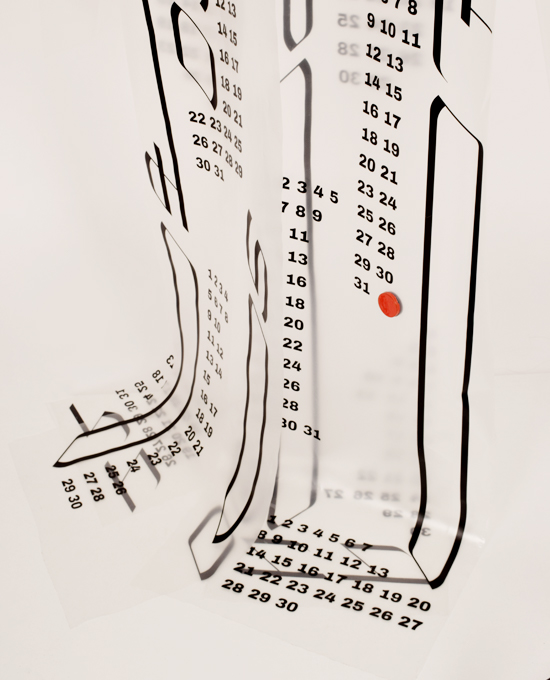 12 13
14 15
16 17
18 19
20 21
22 23 24 25
26 27 28 29
30 31
7 8
9 10 11
12 13
14 15
16 17
18 19
20 21
23 24
25 26
27 28
29 30
31
2 3 4 5
7 8 9
11
13
16
18
20
22
24
26
28
30 31
1 2 3 4
5 6 7 8
9 10
11 12
13 14
15
16 17
18 19
20 21
22
23
24
25 26
27 28
29 30
25
28
30
1 2 3 4 5 6 7
8 9 10 11 12 13
14 15 16 17 18 19 20
21 22 23 24 25 26 27
28 29 30